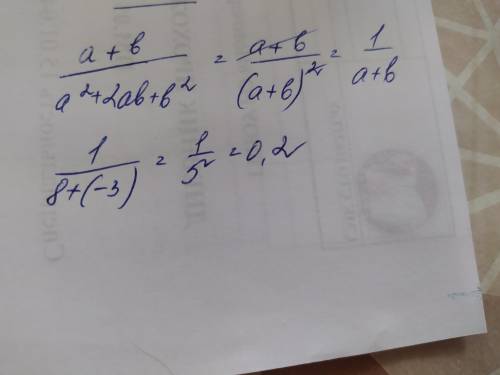 a + b / a²+2ab+b² = a+b / (a+b)² = 1 / a+b
1 / 8+(-3) = 1 / 5 = 0,2